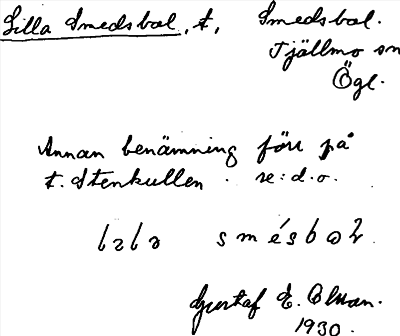 Lilla Smedsbol, t., Smedsbol.
Tjällmo sn
Ögl.
Annan benämning förr på
t. Stenkullen. se: d. o.
smésbol
Gustaf E. Olsson.
1930.